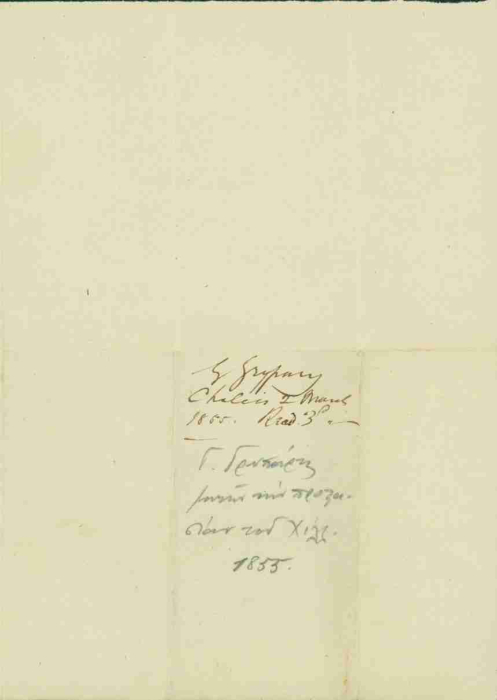 G Grypary
Chalcis 2 March
1855. Read 3d
Γ. Γρυπάρης
τοῦ Χιλ.
1855.